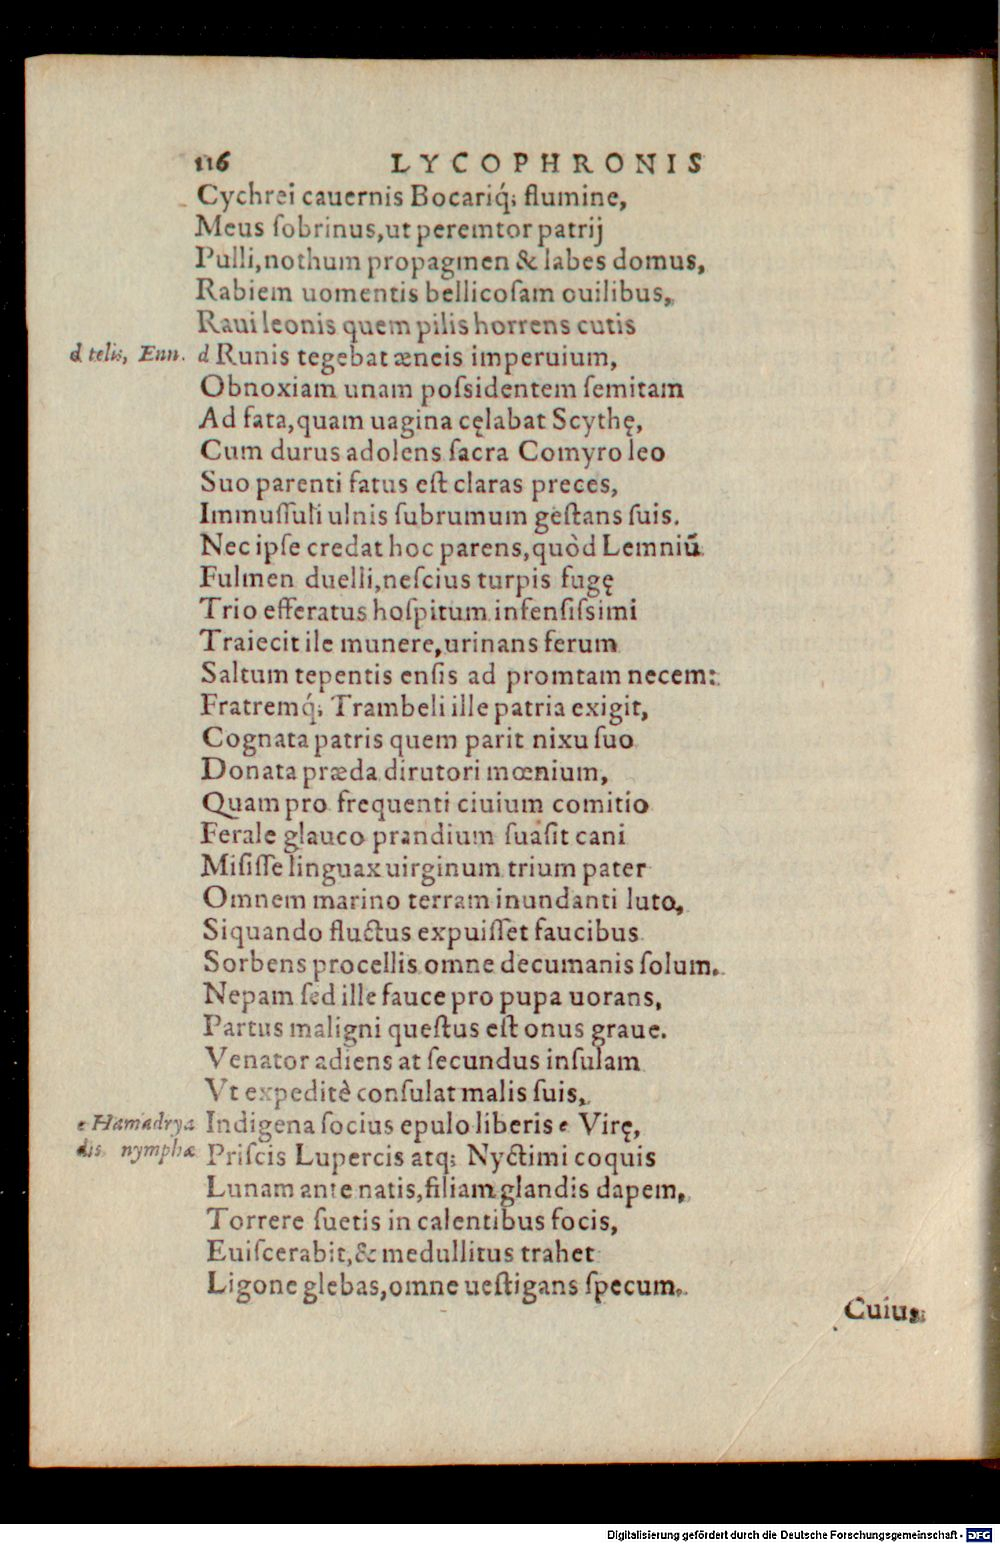 116 LYCOPHRONIS
Cychrei cauernis Bocariq́; flumine,
Meus ſobrinus, ut peremtor patrij
Pulli, nothum propagmen & labes domus,
Rabiem uomentis bellicoſam ouilibus,
Raui leonis quem pilis horrens cutis
d telis, Enn. d Runis tegebat æneis imperuium,
Obnoxiam unam poſsidentem ſemitam
Ad fata, quam uagina cęlabat Scythę,
Cum durus adolens ſacra Comyro leo
Suo parenti fatus eſt claras preces,
Immuſſuli ulnis ſubrumum geſtans ſuis.
Nec ipſe credat hoc parens, quòd Lemniū
Fulmen duelli, neſcius turpis fugę
Trio efferatus hoſpitum infenſiſsimi
Traiecit ile munere, urinans ferum
Saltum tepentis enſis ad promtam necem:
Fratremq́; Trambeli ille patria exigit,
Cognata patris quem parit nixu ſuo
Donata præda dirutori mœnium,
Quam pro frequenti ciuium comitio
Ferale glauco prandium ſuaſit cani
Miſiſſe linguax uirginum trium pater
Omnem marino terram inundanti luto,
Siquando fluctus expuiſſet faucibus
Sorbens procellis omne decumanis ſolum.
Nepam ſed ille fauce pro pupa uorans,
Partus maligni queſtus eſt onus graue.
Venator adiens at ſecundus inſulam
Vt expeditè conſulat malis ſuis,
e Hamadrya Indigena ſocius epulo liberis e Virę,
dis nymphæ Priſcis Lupercis atq; Nyctimi coquis
Lunam ante natis, filiam glandis dapem,
Torrere ſuetis in calentibus focis,
Euiſcerabit, & medullitus trahet
Ligone glebas, omne ueſtigans ſpecum.
Cuius
Digitalisierung gefördert durch die Deutsche Forschungsgemeinschaft - DFG